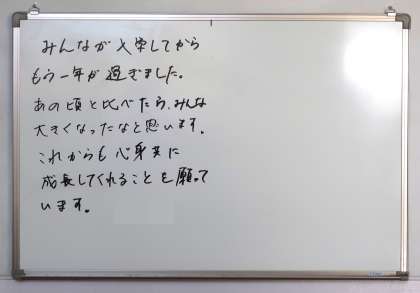 みんなが入学してから
もう一年が過ぎました。
あの頃と比べたら、みんな
大きくなったなと思います。
これからも心身共に
成長してくれることを願って
います。